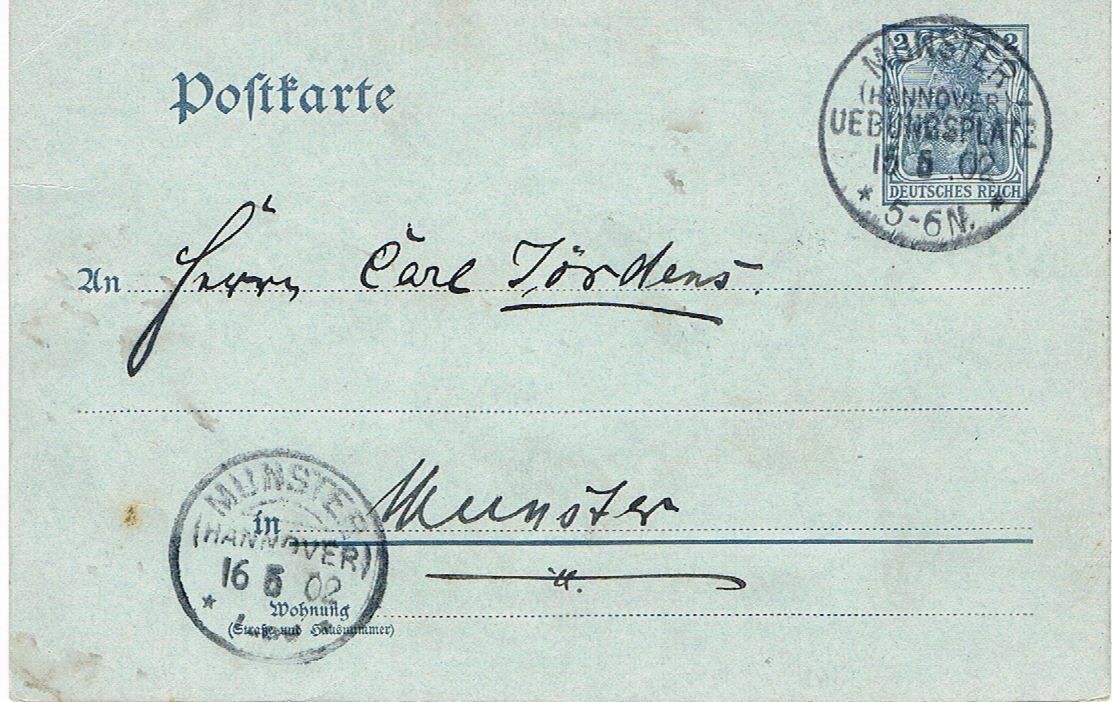 Postkarte
2 2
DEUTSCHES REICH
MUNSTER
(HANNOVER)
UEBUNGSPLATZ
15 5 . 02
* 5-6N. *
An Herrn Carl Jördens.
in Munster
MUNSTER
(HANNOVER)
16 5 02
Wohnung
(Straße und Hausnummer)